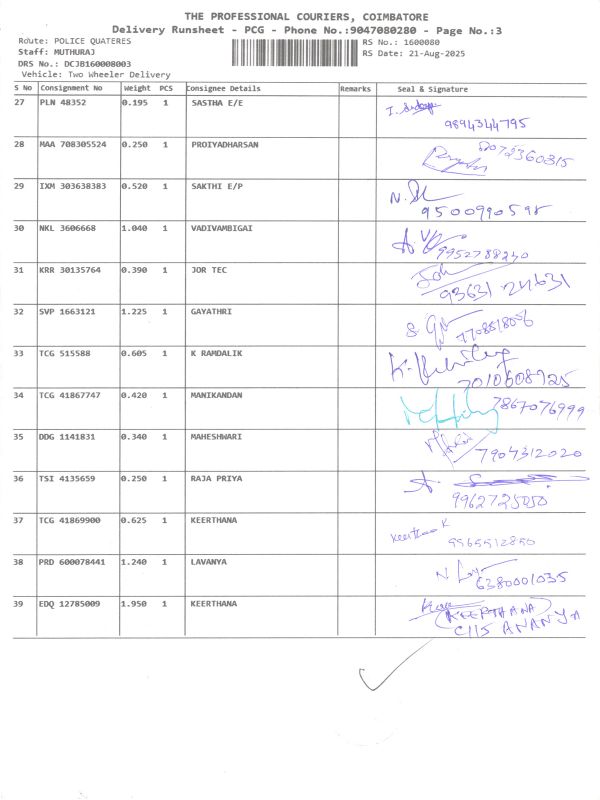 THE PROFESSIONAL COURIERS, COIMBATORE
Delivery Runsheet - PCG - Phone No.:9047080280 - Page No.:3
Route: POLICE QUATERES RS No.: 1600080
Staff: MUTHURAJ RS Date: 21-Aug-2025
DRS No.: DCJB160008003
Vehicle: Two Wheeler Delivery
S No Consignment No Weight PCS Consignee Details Remarks Seal & Signature
27 PLN 48352 0.195 1 SASTHA E/E
9894344795
28 MAA 708305524 0.250 1 PROIYADHARSAN
8072360315
29 IXM 303638383 0.520 1 SAKTHI E/P
9500990598
30 NKL 3606668 1.040 1 VADIVAMBIGAI
9952788240
31 KRR 30135764 0.390 1 JOR TEC
93631 24631
32 SVP 1663121 1.225 1 GAYATHRI
7708518006
33 TCG 515588 0.605 1 K RAMDALIK
7010608925
34 TCG 41867747 0.420 1 MANIKANDAN 7867076999
35 DDG 1141831 0.340 1 MAHESHWARI
7904312020
36 TSI 4135659 0.250 1 RAJA PRIYA
9962725050
37 TCG 41869900 0.625 1 KEERTHANA Keerthana K
9965512850
38 PRD 600078441 1.240 1 LAVANYA
6380001035
39 EDQ 12785009 1.950 1 KEERTHANA
KEERTHANA
C115 ANANYA